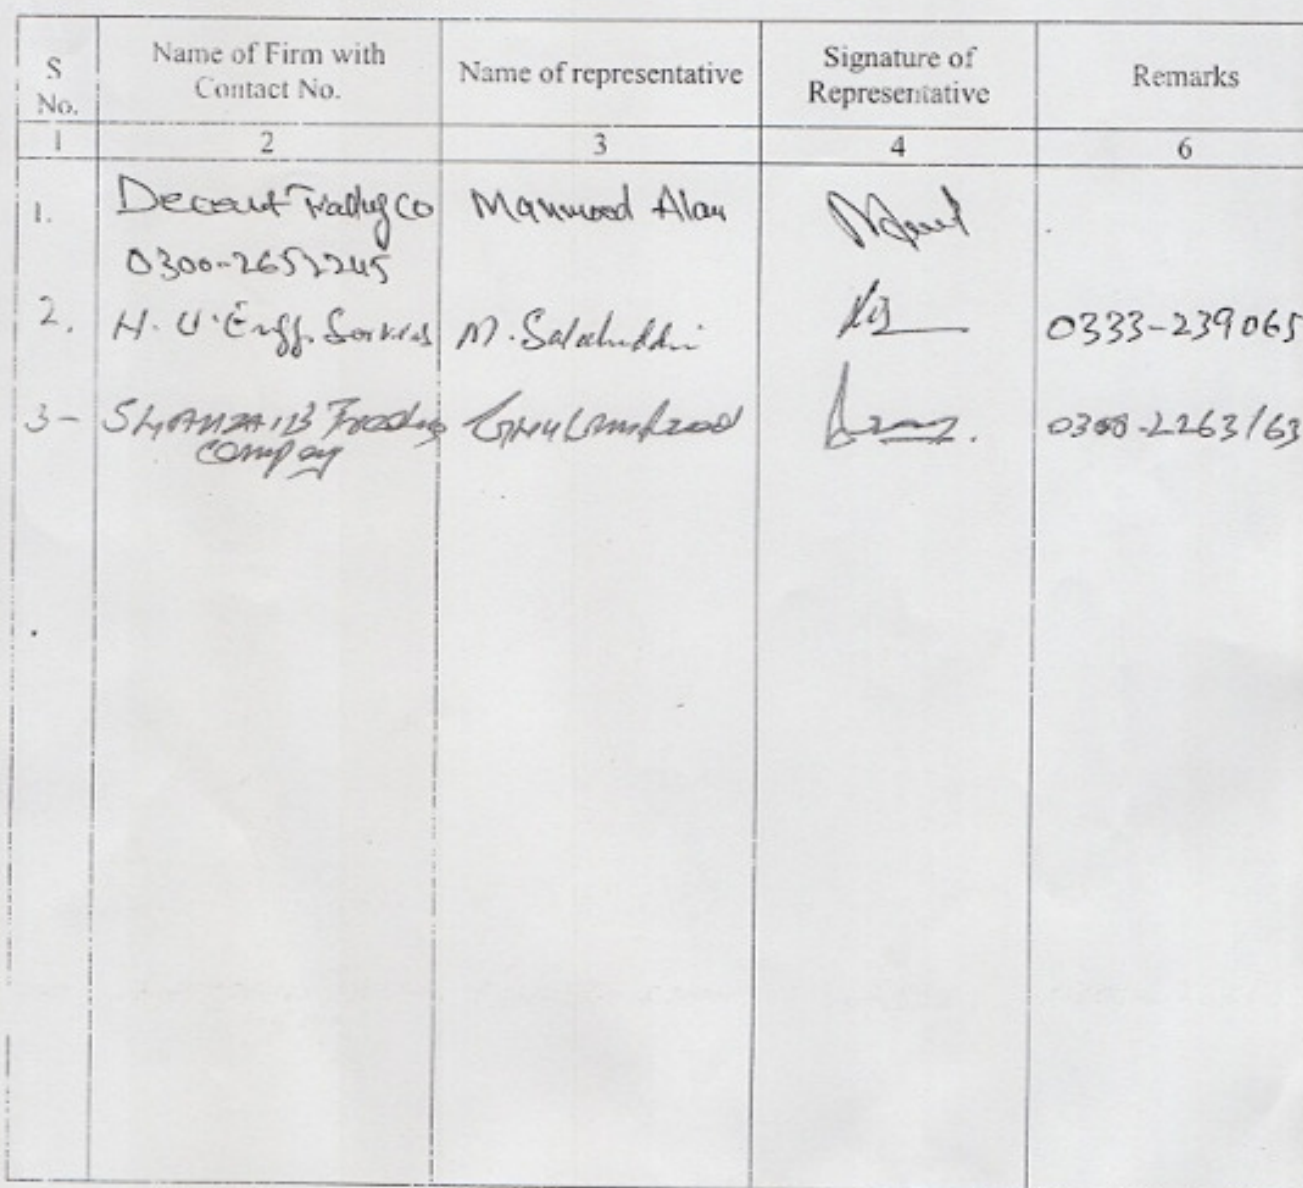 S No. Name of Firm with Contact No. Name of representative Signature of Representative Remarks
1 2 3 4 6
1. Decent Trading Co Mahmood Alam
0300-2652245
2. H.U. Engg. Services M. Salahuddin 0333-239065
3- SHANZAIB Trading Company 0300-2263163